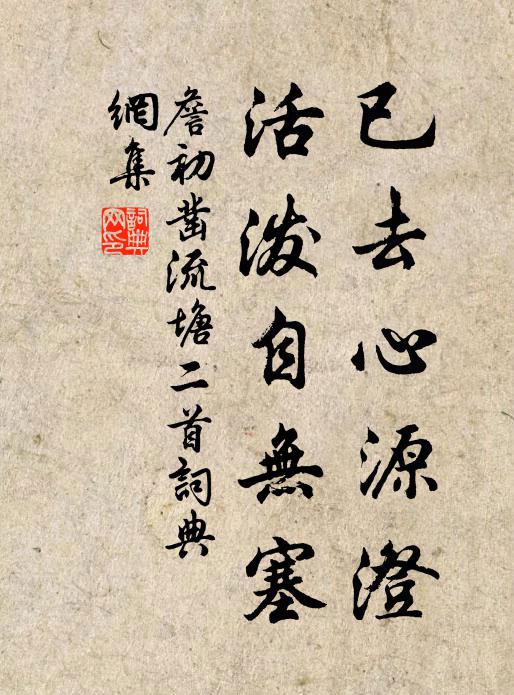 已去心源澄
活泼自無塞
詹初凿流塘二首詞典
網集
詞典
网印